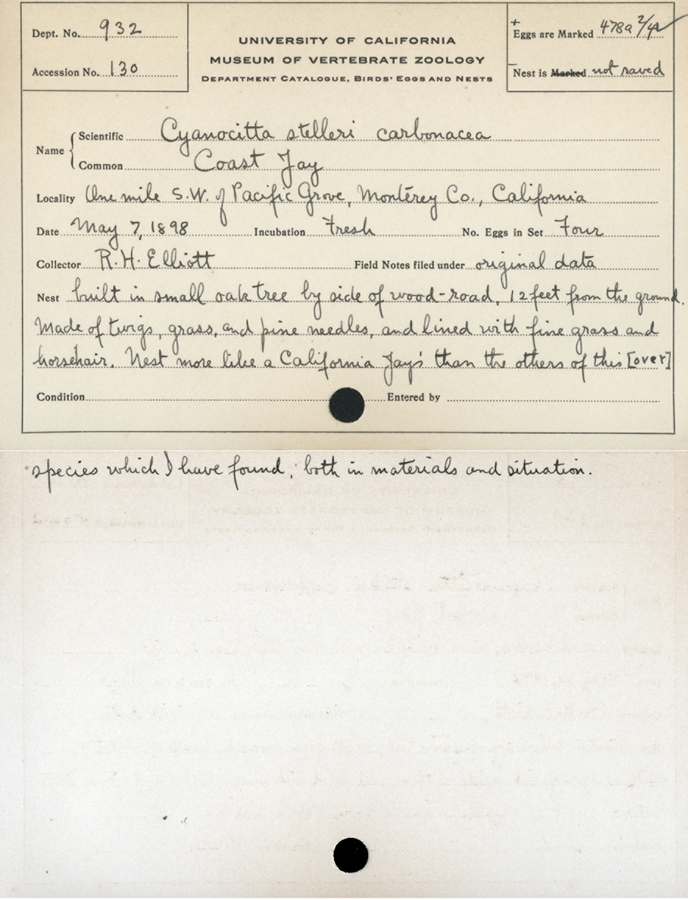 Dept. No. 932
Accession No. 130
UNIVERSITY OF CALIFORNIA
MUSEUM OF VERTEBRATE ZOOLOGY
DEPARTMENT CATALOGUE, BIRDS' EGGS AND NESTS
+
Eggs are Marked 478a 2/4
Nest is Marked not saved
Name
Scientific Cyanocitta stelleri carbonacea
Common Coast Jay
Locality One mile S.W. of Pacific Grove, Monterey Co., California
Date May 7, 1898 Incubation Fresh No. Eggs in Set Four
Collector R. H. Elliott Field Notes filed under original data
Nest built in small oak tree by side of wood-road, 12 feet from the ground.
Made of twigs, grass, and pine needles, and lined with fine grass and
horsehair. Nest more like a California Jay's than the others of this [over]
Condition Entered by
species which I have found, both in materials and situation.